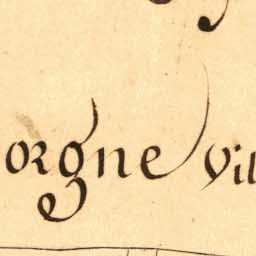 orgne Vil